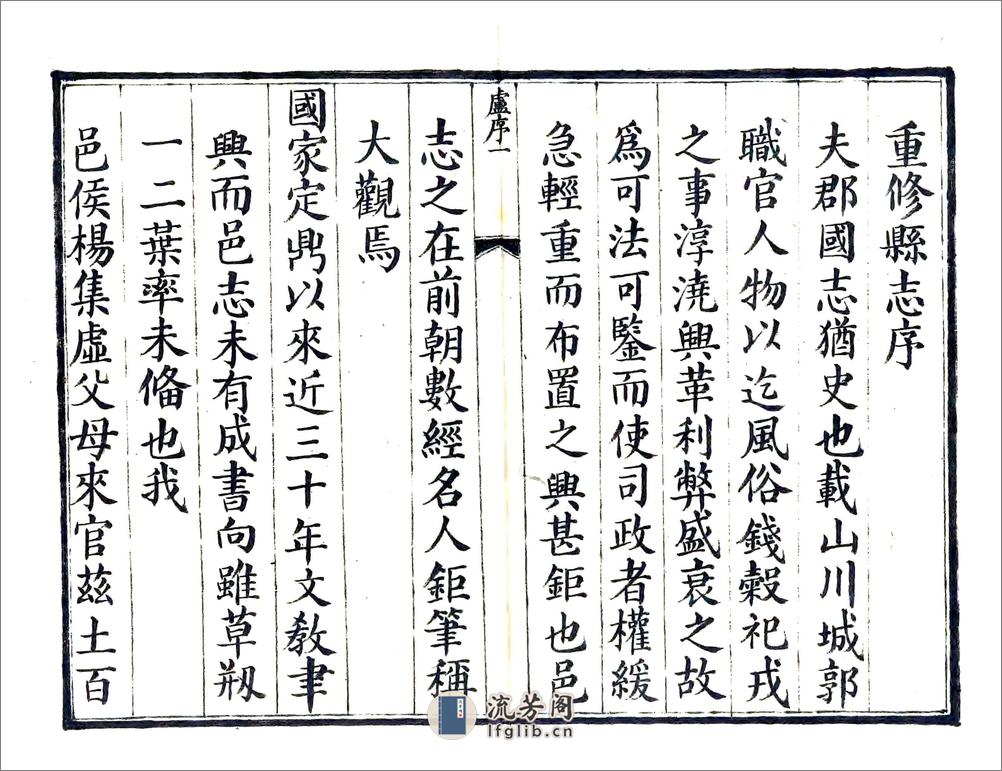 重修縣志序
夫郡國志猶史也載山川城郭
職官人物以迄風俗錢穀祀戎
之事淳澆興革利弊盛衰之故
爲可法可鑒而使司政者權緩
急輕重而布置之興甚鉅也邑
盧序一
志之在前朝數經名人鉅筆稱
大觀焉
國家定鼎以來近三十年文教聿
興而邑志未有成書向雖草剏
一二葉率未俻也我
邑侯楊集虛父母來官茲土百
流芳阁
lfglib.cn